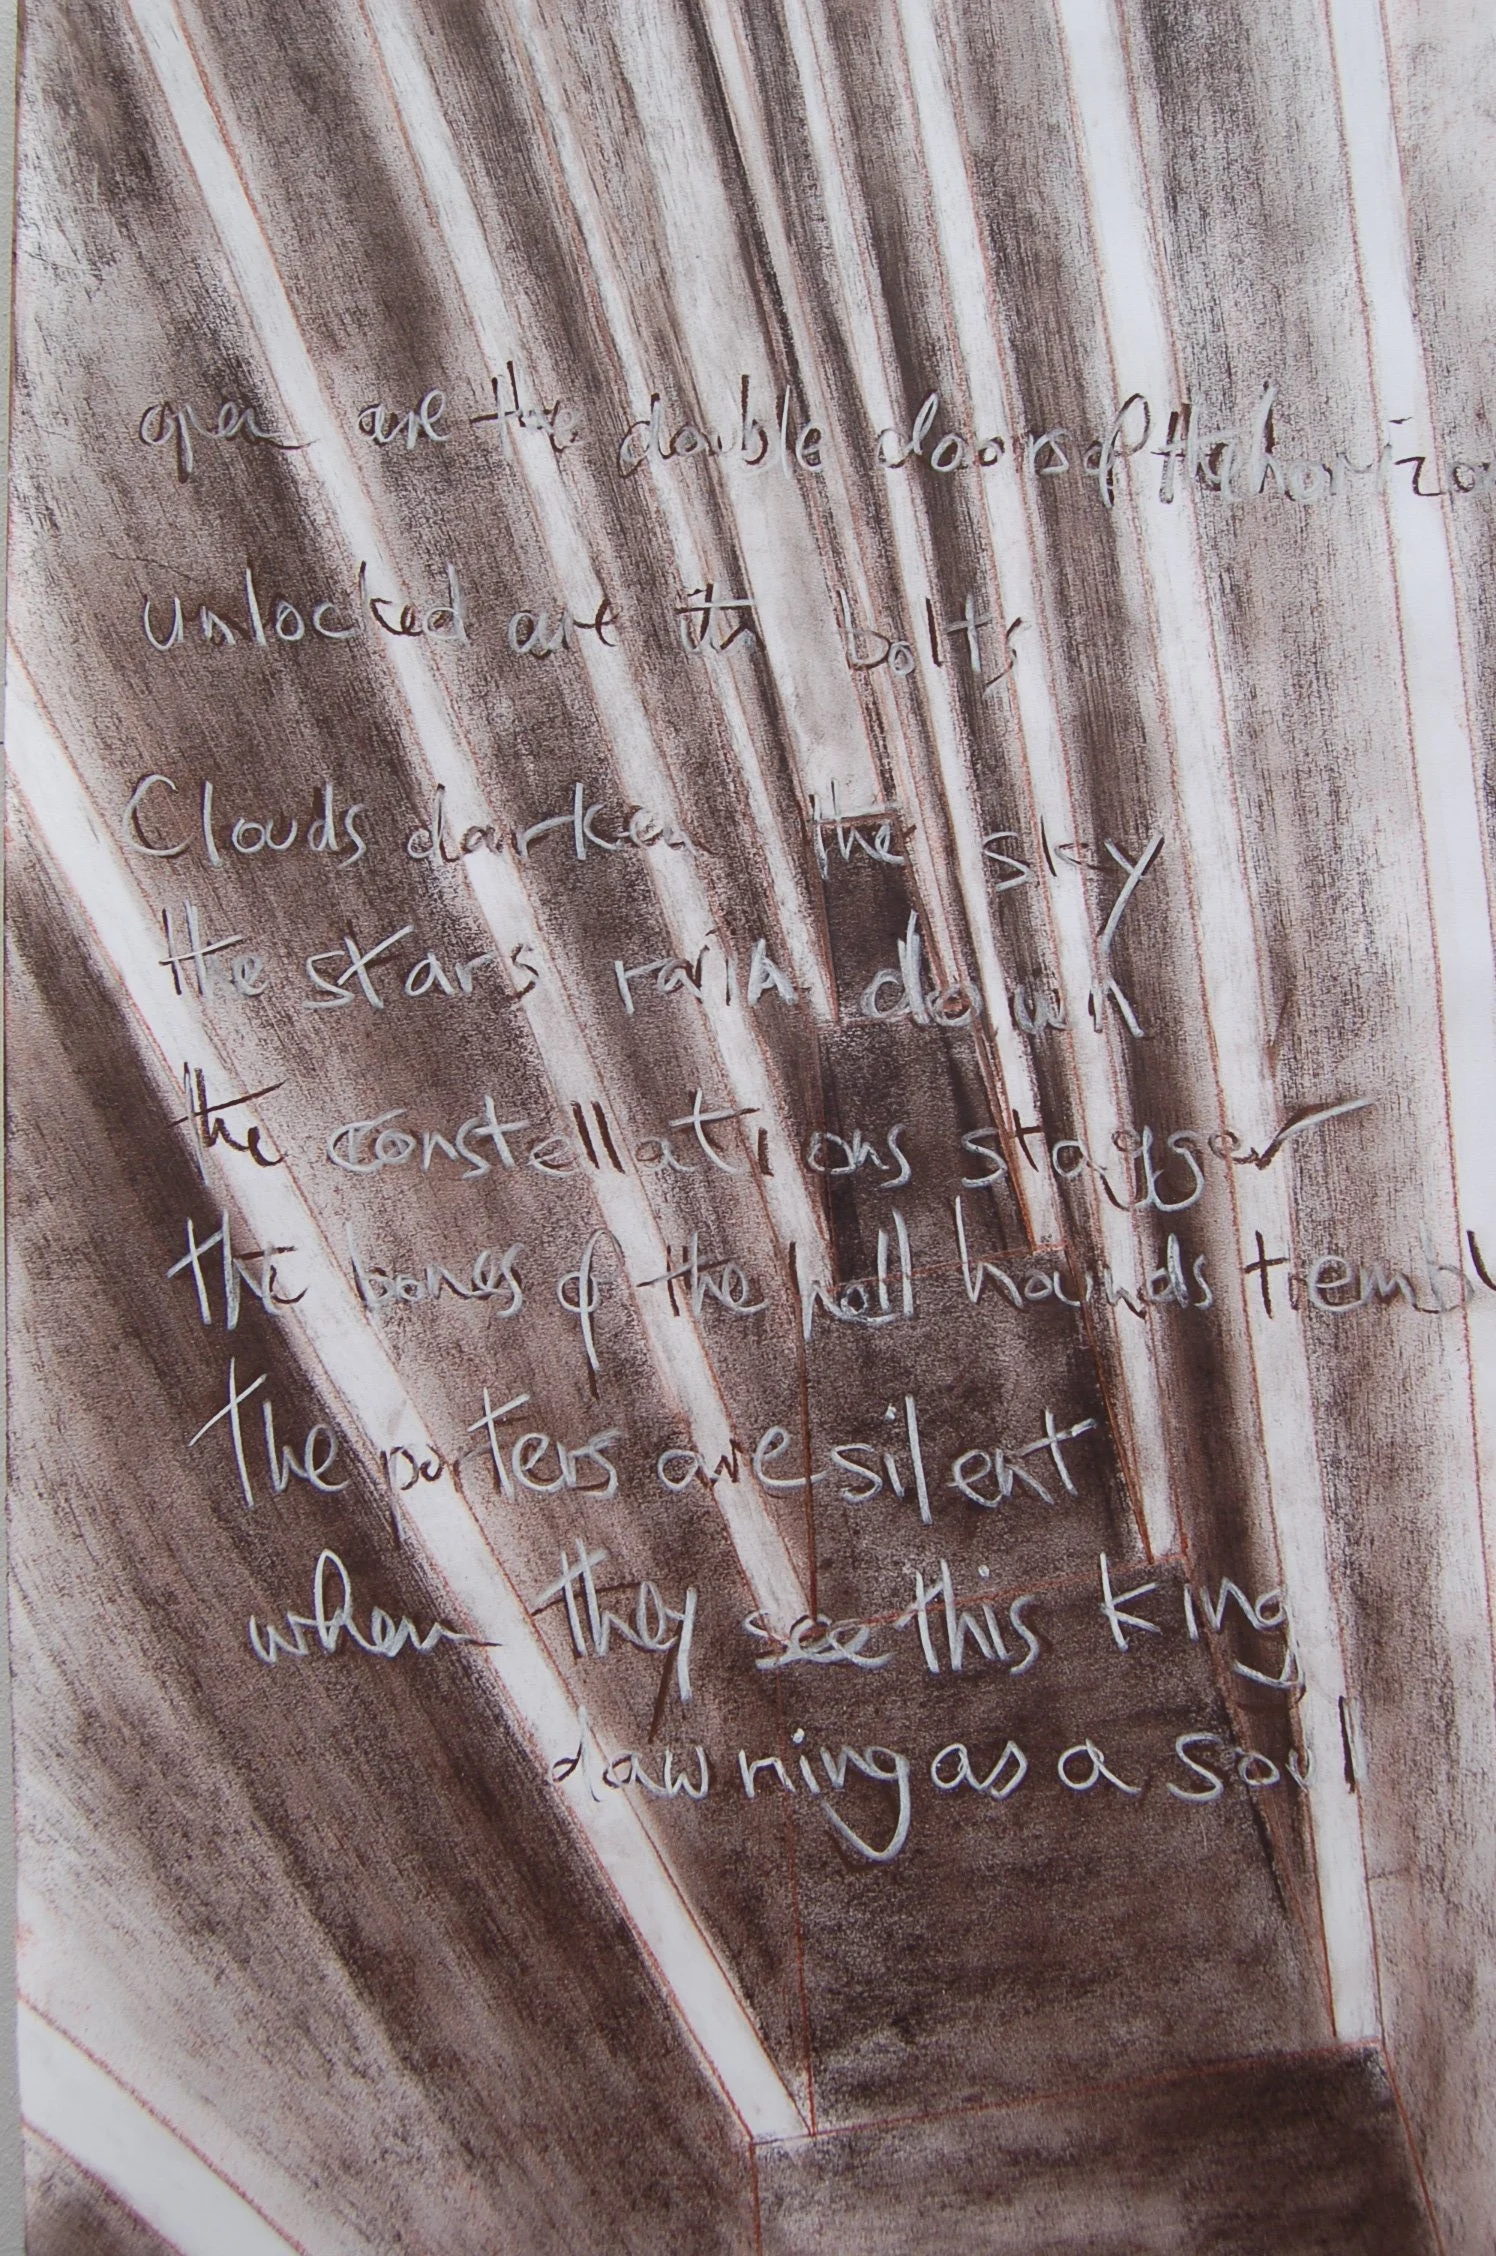 open are the double doors of the horizo
unlocked are its bolts
Clouds darken the sky
the stars rain down
the constellations stagger
the bones of the hell hounds trembl
the porters are silent
when they see this king
dawning as a soul